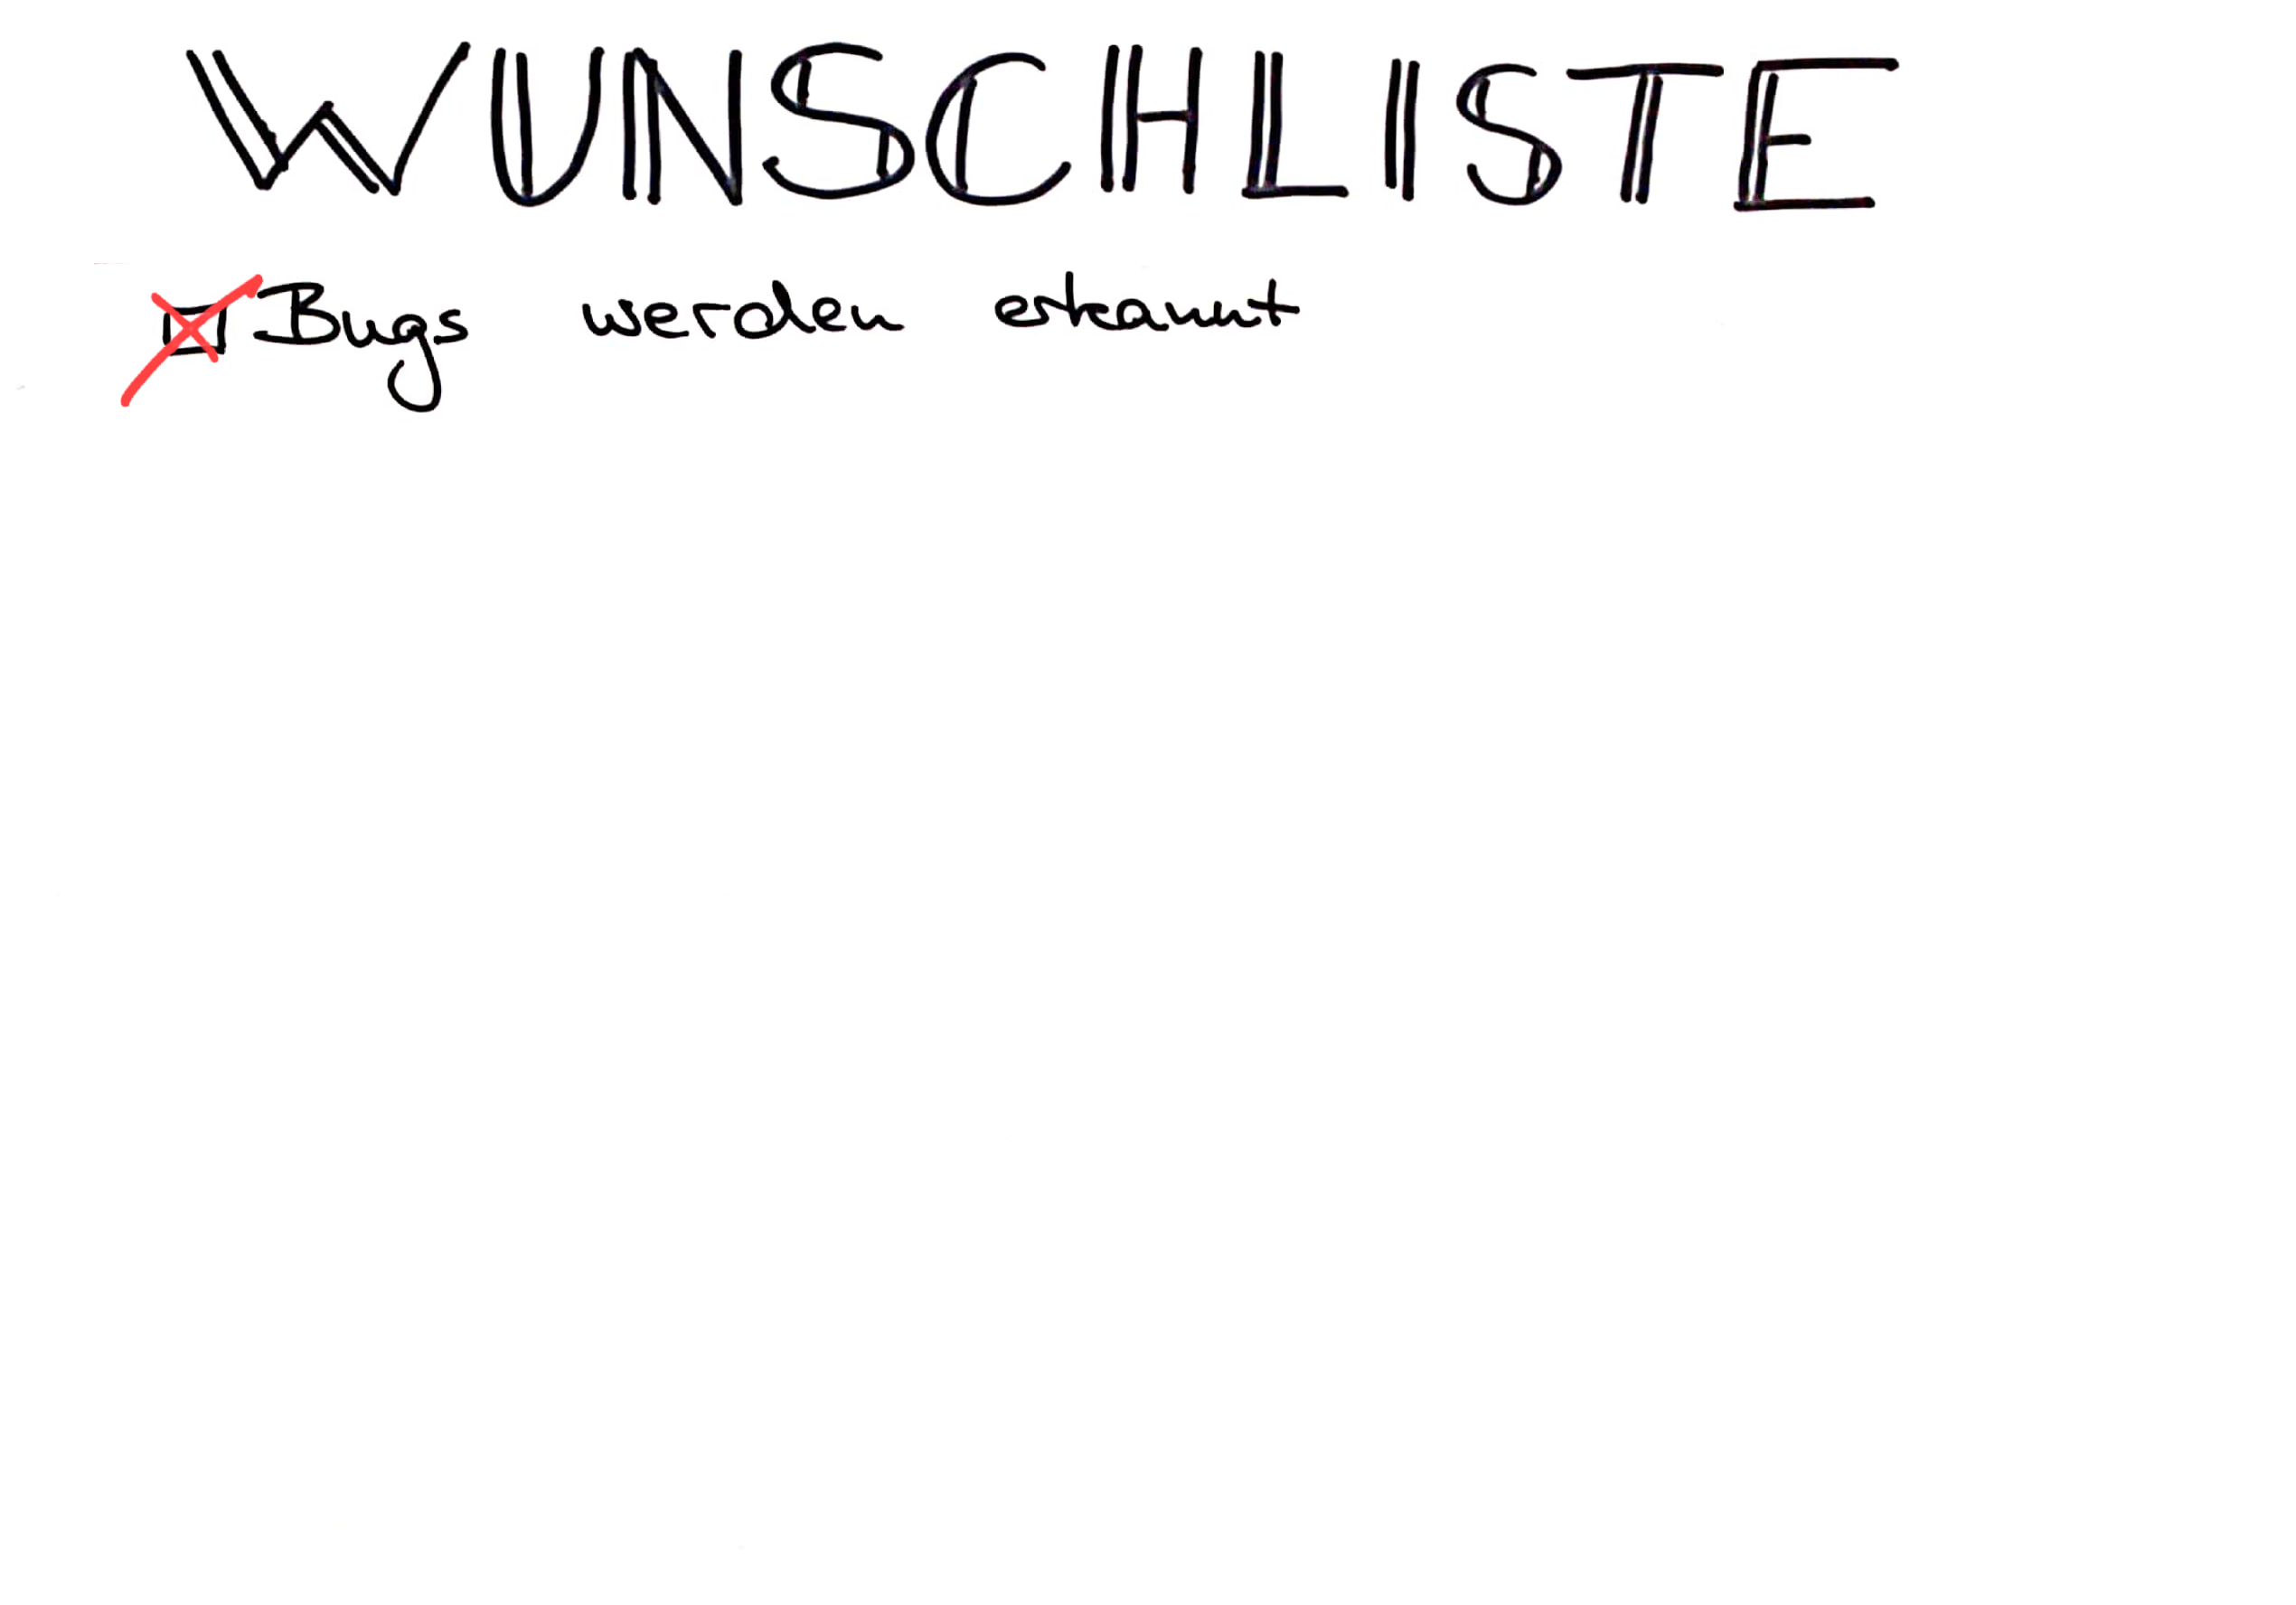 WUNSCHLISTE
Bugs werden erkannt